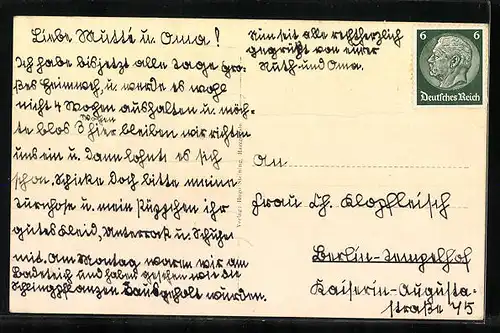 Liebe Mutti u. Oma!
Ich habe bisjetzt alle Tage gro-
ßes Heimweh, u. werde es wohl
nicht 4 Wochen aushalten u. möch-
te blos 3 Wochen hier bleiben wir richten
uns ein u. dann lohnt es sich
schon. Schicke doch bitte meine
Turnhose u. mein Püppchen ihr
gutes Kleid, Unterrock u. Schuhe
mit. Am Montag waren wir am
Badeteich und haben gesehen wie die
Schlingpflanzen rausgeholt wurden.
Nun seit alle recht herzlich
gegrüßt von eurer
Ruth und Oma.
6 6
Deutsches Reich
An
Frau Ch. Klopfleisch
Berlin-Tempelhof
Kaiserin-Augusta-
straße 75